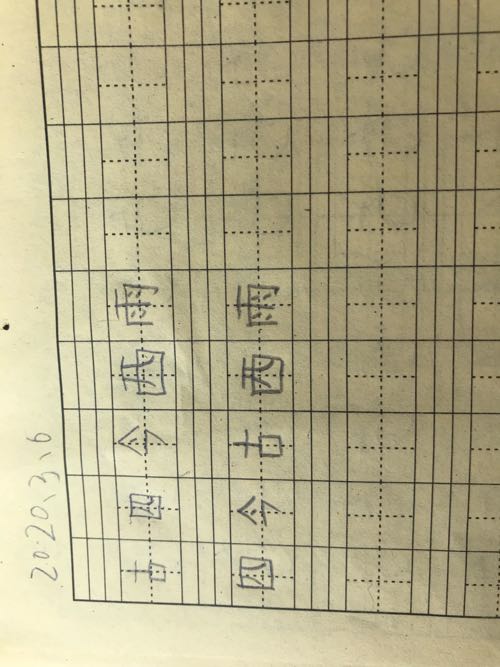 2020、3、6
古四今西雨
四今古西雨